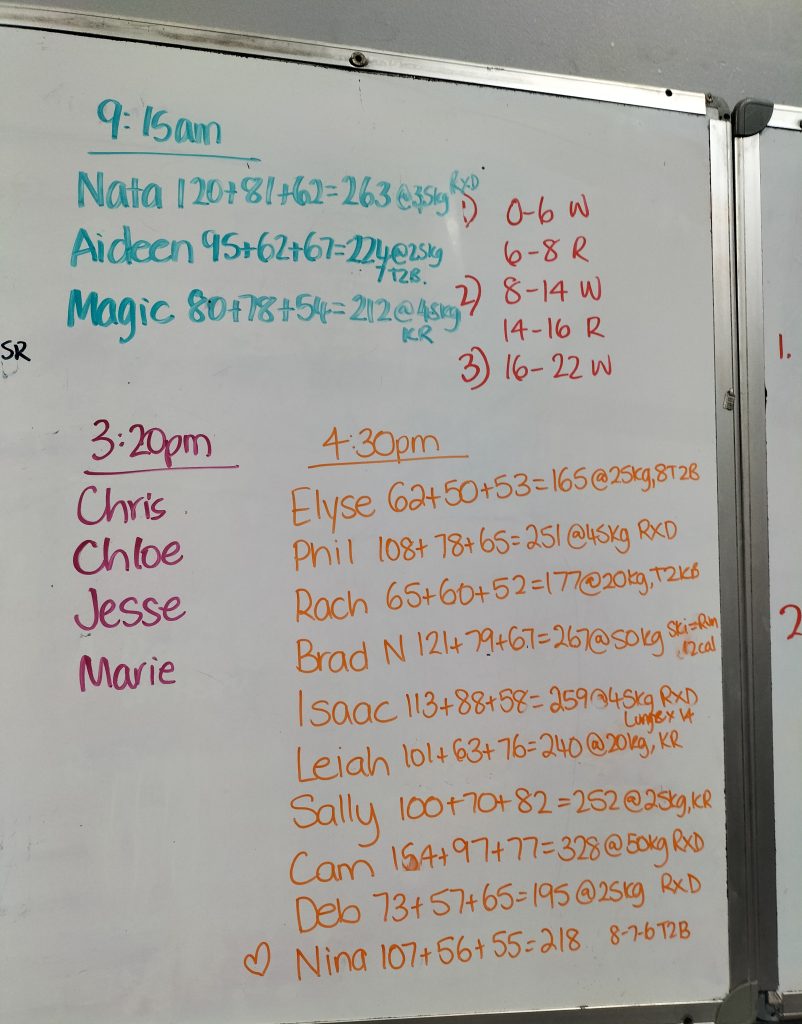 9:15am
Nata 120+81+62=263@35kg RXD
Aideen 95+62+67=224@25kg
7 T2B.
Magic 80+78+54=212@45kg
KR
1) 0-6 W
6-8 R
2) 8-14 W
14-16 R
3) 16-22 W
SR
3:20pm
Chris
Chloe
Jesse
Marie
4:30pm
Elyse 62+50+53=165@25kg, 8T2B
Phil 108+78+65=251@45kg RXD
Rach 65+60+52=177@20kg, T2KB
Brad N 121+79+67=267@50kg Ski=Run
12cal
Isaac 113+88+58=259@45kg RXD
Lunge x 14
Leiah 101+63+76=240@20kg, KR
Sally 100+70+82=252@25kg, KR
Cam 154+97+77=328@50kg RXD
Deb 73+57+65=195@25kg RXD
♡ Nina 107+56+55=218 8-7-6 T2B
1.
2